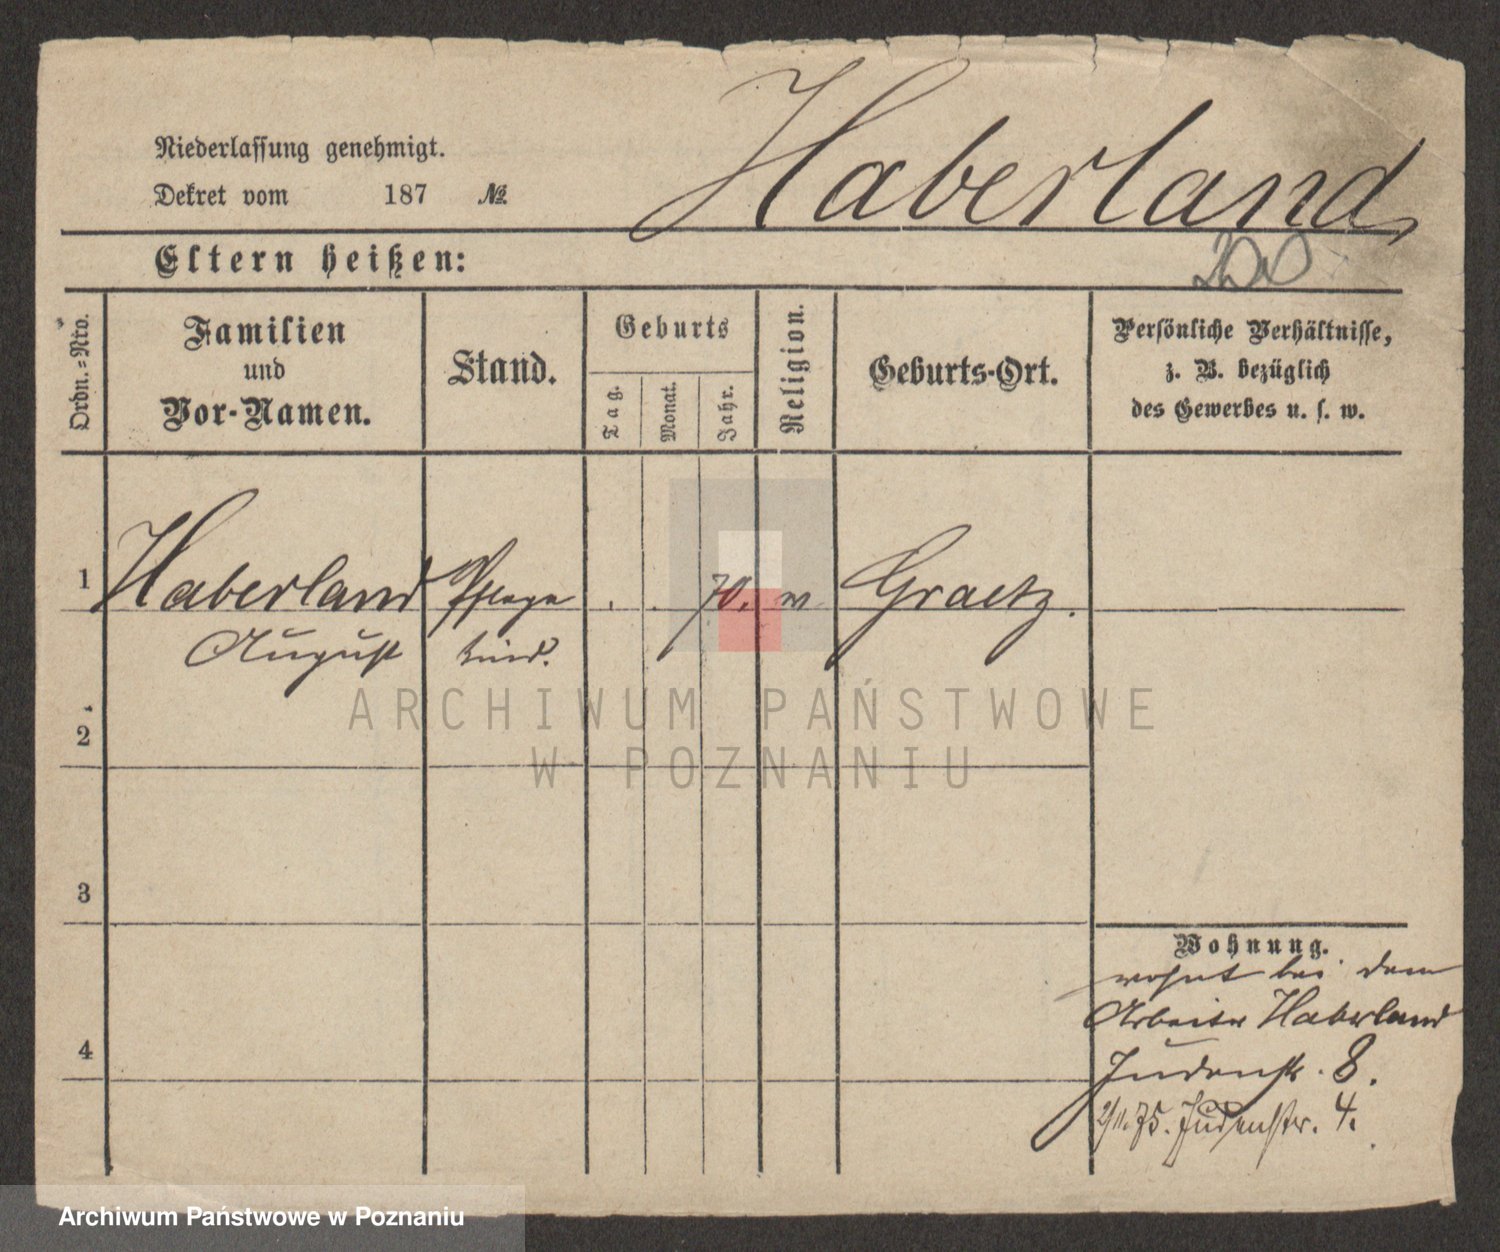 Haberland
Niederlassung genehmigt.
Dekret vom 187 №
Eltern heißen:
Ordn.-Nro.
Familien
und
Vor-Namen.
Stand.
Geburts
Tag.
Monat.
Jahr.
Religion.
Geburts-Ort.
Persönliche Verhältnisse,
z. B. bezüglich
des Gewerbes u. s. w.
1 Haberland Pflege . . 70. Graetz.
August kind.
2
3
4
Wohnung.
wohnt bei dem
Arbeiter Haberland
Judenstr. 8.
2/11.75. Judenstr. 4.
ARCHIWUM PAŃSTWOWE
W POZNANIU
Archiwum Państwowe w Poznaniu